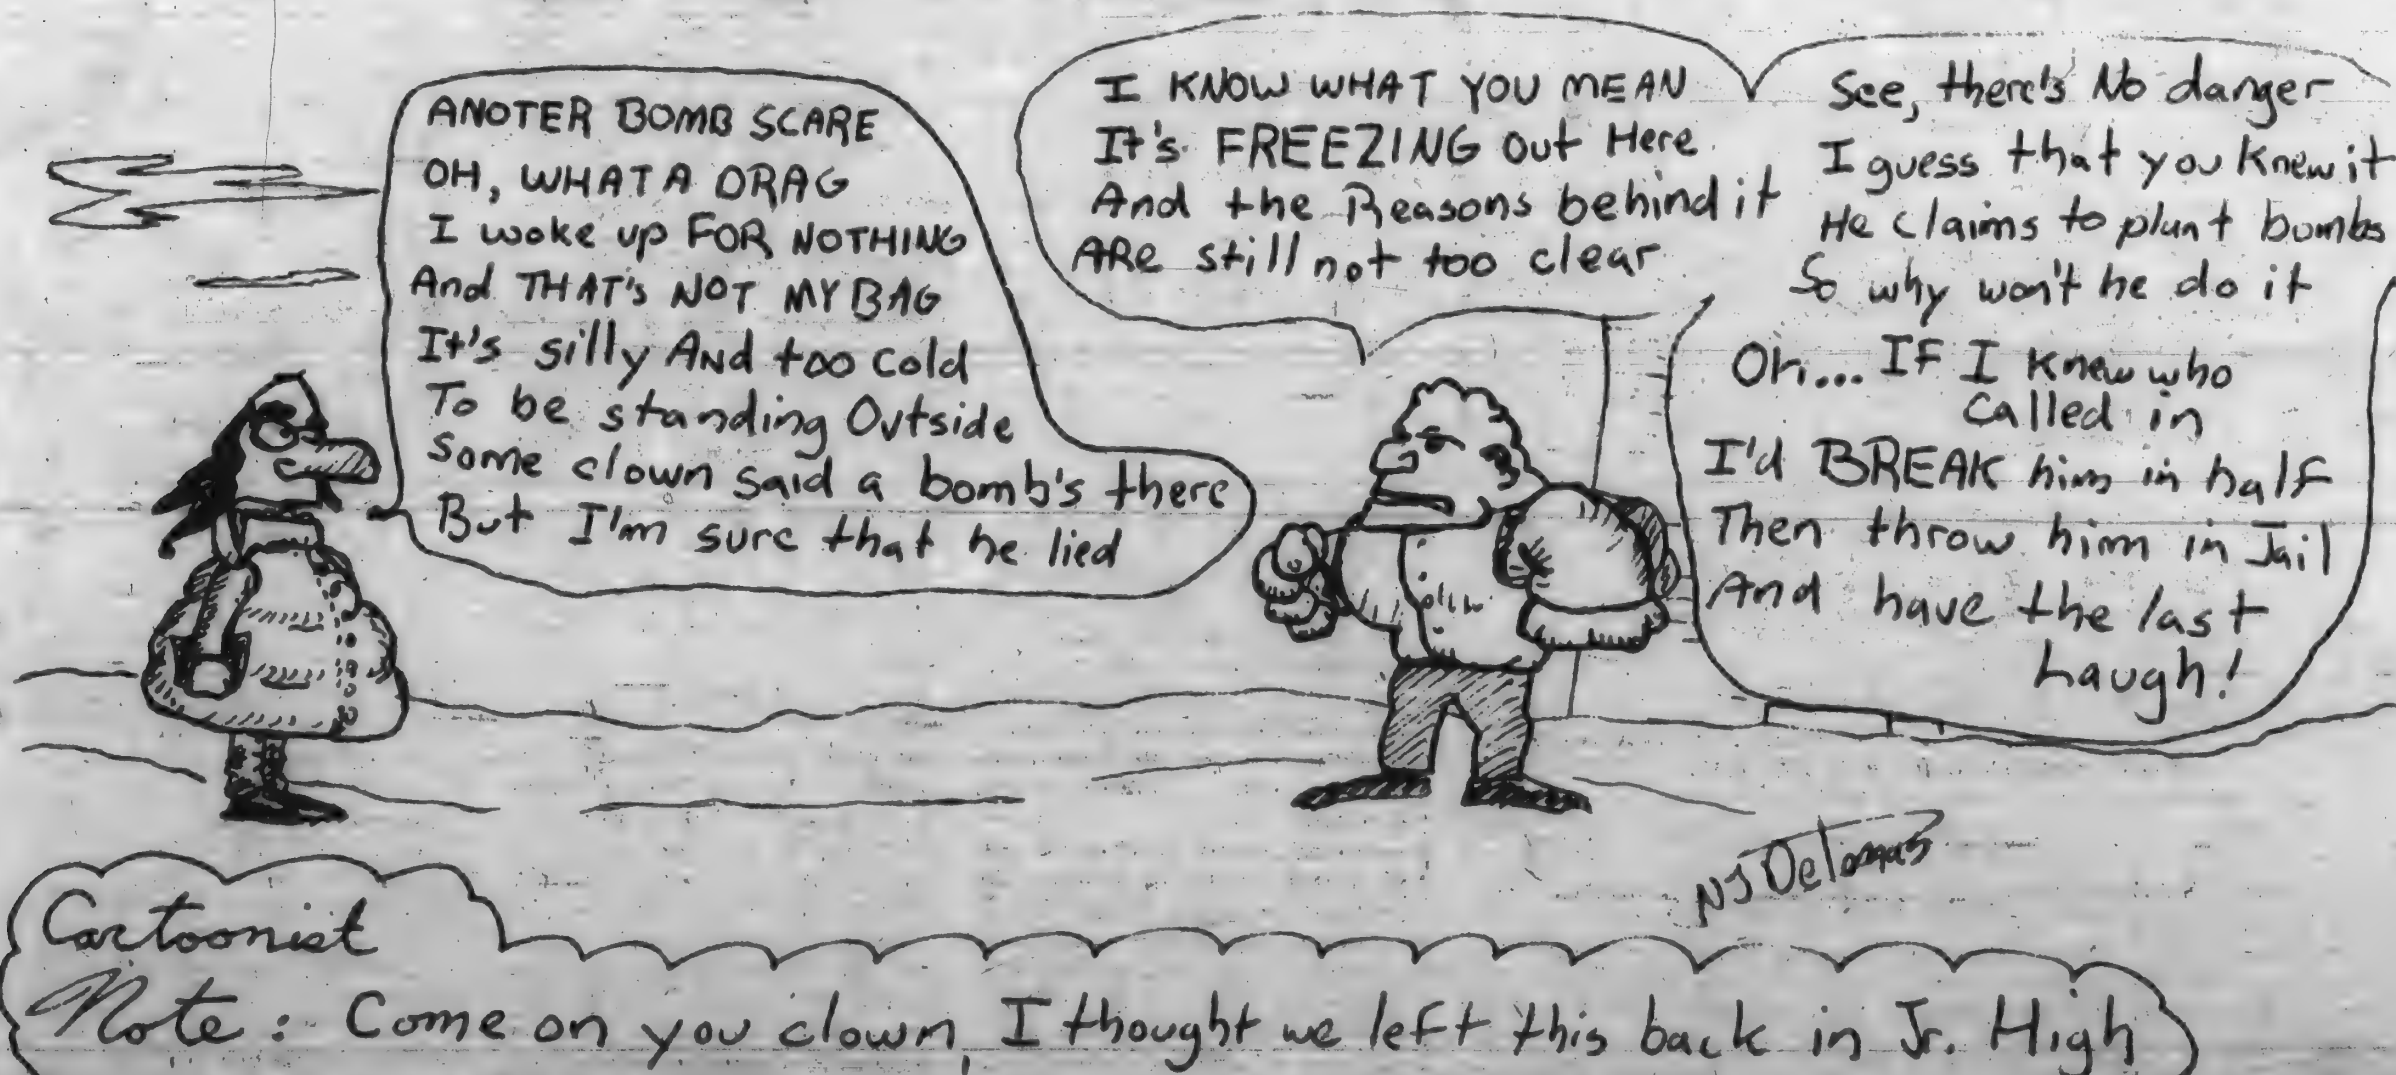 ANOTER BOMB SCARE
OH, WHAT A DRAG
I woke up FOR NOTHING
And THAT's NOT MY BAG
It's silly And too cold
To be standing Outside
Some clown said a bomb's there
But I'm sure that he lied
I KNOW WHAT YOU MEAN
It's FREEZING Out Here
And the Reasons behind it
ARe still not too clear
See, there's No danger
I guess that you Knew it
He claims to plant bombs
So why won't he do it
Oh... IF I knew who
called in
I'd BREAK him in half
Then throw him in Jail
And have the last
Laugh!
NJ
Cartoonist
Note: Come on you clown, I thought we left this back in Jr. High